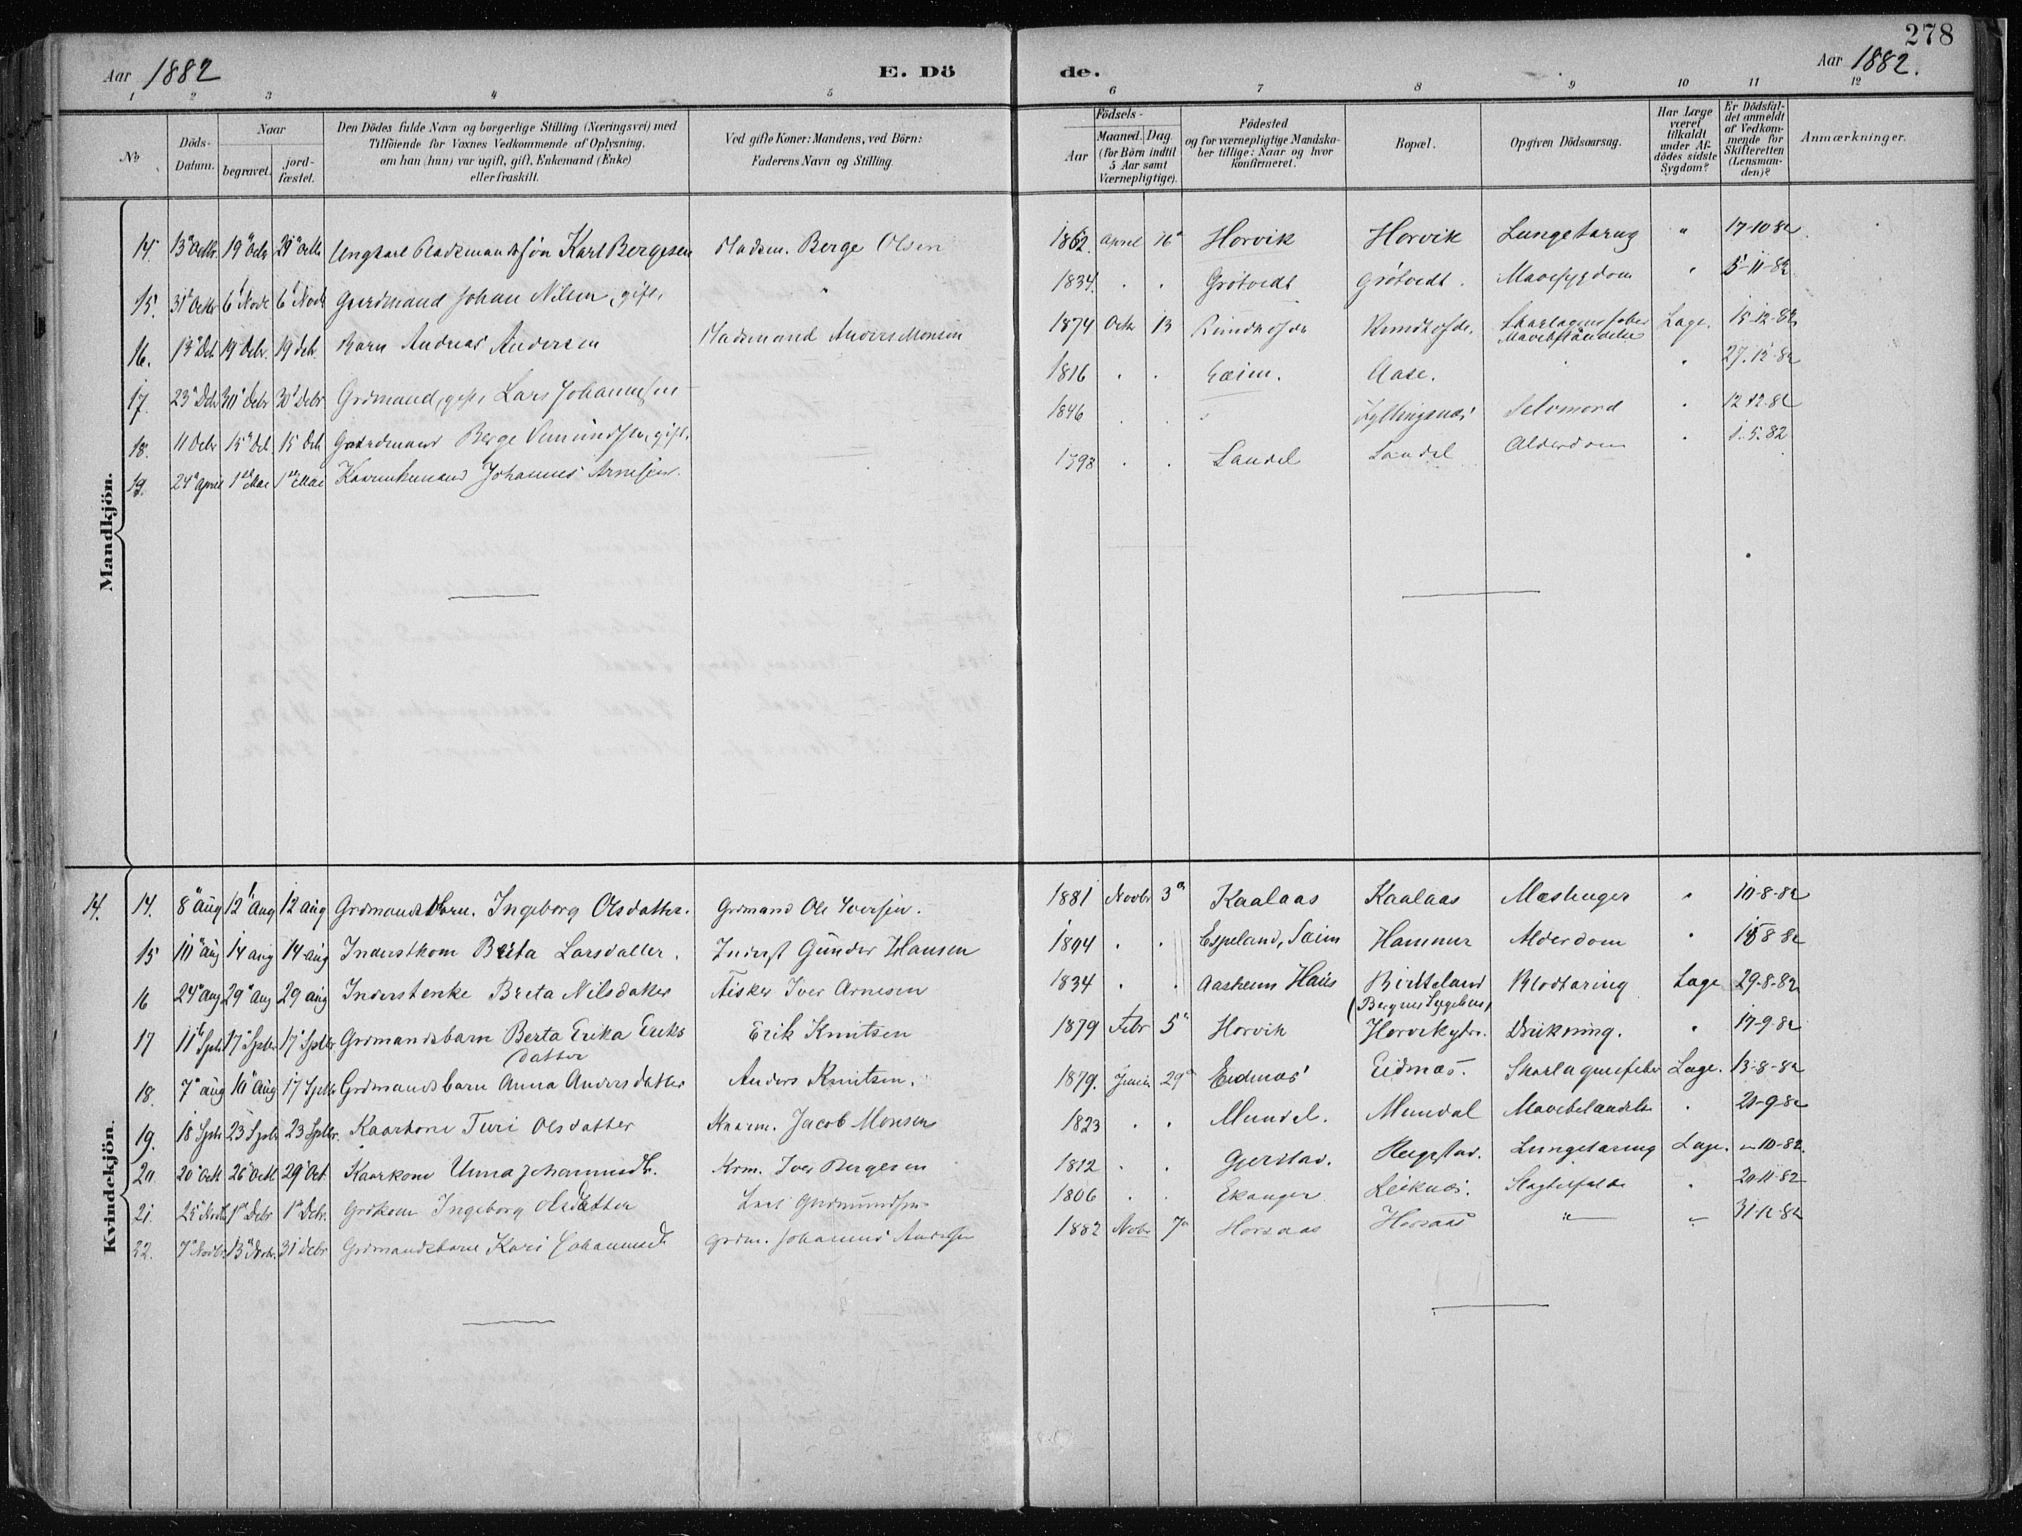 278
Aar 1882 E. Dö de. Aar 1882.
1 2 3 4 5 6 7 8 9 10 11 12
No
Döds-Datum.
Naar
begravet.
jord-fæstet.
Den Dödes fulde Navn og borgerlige Stilling (Næringsvei) med
Tilföiende for Voxnes Vedkommende af Oplysning,
om han (hun) var ugift, gift, Enkemand (Enke)
eller fraskilt.
Ved gifte Koner: Mandens, ved Börn:
Faderens Navn og Stilling.
Födsels-
Aar
Maaned. Dag.
(for Börn indtil
5 Aar samt
Værnepligtige).
Födested
og for værnepligtige Mandska-
ber tillige: Naar og hvor
konfirmeret.
Bopæl.
Opgiven Dödsaarsag.
Har Læge
været
tilkaldt
under Af-
dödes sidste
Sygdom?
Er Dödsfal-
det anmeldt
af Vedkom-
mende for
Skifteretten
(Lensman-
den)?
Anmærkninger.
Mandkjön.
14. 13 Octr. 19 Octr 29 Octr Ungkarl Pladsmandssön Karl Bergesen Pladsm. Berge Olsen 1862 April 16 Horvik Horvik Lungetæring " 17-10 82
15. 31 Octr 6 Novb 6 Novb Gaardmand Johan Nilsen, gift, " 1834. " " Grötvedt Grötvedt. Mavesygdom " 5-11-82
16. 13 Deb 19 Debr. 19 deb. Barn Andreas Andersen Pladsmand Anders Monsen 1874 Octr 13 Skarlagensfeber Læge. 15-12-82
17. 23 Deb 30 Debr 30 Debr Grdmand, gift, Lars Johannessen 1816 " " Sæim. Aase. " " 27-12-82
18. 11 Debr 15 Deb 15 Deb Gaardmand Berge gift, 1846 " " Selvmord " 12-12-82
19. 24 April 1 Mai 1 Mai Johannes Arnesen 1798 " " Landel Landel Alderdom " 1.5.82
Kvindekjön.
14. 14. 8 aug 12 Aug 12 aug Grdmandsbarn. Ingeborg Olsdatter. Grdmand Ole Iversen. 1881 Novbr 3 Kaalaas Kaalaas Mæslinger " 10-8-82
15 10 aug 14 aug 14 aug Inderstkone Brita Larsdatter. Inderst Gunder Hansen 1804 " " Espeland, Sæim Hammer Alderdom " 15-8-82
16 24 Aug 29 Aug 29 aug Inderstenke Brita Nilsdatter Fisker Iver Arnesen 1834 " " Aasheim Haus Birkeland Blodtæring Læge 29-8-82
(Bergens Sygehus)
17 11 Sptb 17 Sptbr 17 Sptbr Grdmandsbarn Berta Erika Eriks Erik Knutsen 1879 Febr 5 Horvik Horvikytre. Drukning. " 17-9-82
datter
18. 7 aug 10 Aug 17 Sptbr Grdmandsbarn Anna Andersdatter Anders Knutsen. 1879. Juni 29 Eidnæs Eidnæs. Skarlagensfeber Læge. 13-8-82
19. 18 Sptb 23 Sptbr 23 Sptbr. Kaarkone Turi Olsdatter Kaarm. Jacob Monsen 1823 " " Mundal. Mundal " 20-9-82
20 20 Octb 26 Octb 29 Oct Kaarkone Unna Johannesdt. Krm. Iver Bergesen 1812 " " Gjerstad. Hegestad. Lungetæring Læge. -10-82.
21. 25 Novbr 1 Debr 1 Debr. Grdkone Ingeborg Olsdatter Lars Gudmundsen 1806 " " Ekanger Leiknæs. " 20-11-82
22. 7 Novbr 13 Debr. 31 debr Grdmandsbarn Kari Johannesdt. Grdm. Johannes Andersen 1882 Nobr 7 Horsaas Horsaas " " 31-12-82